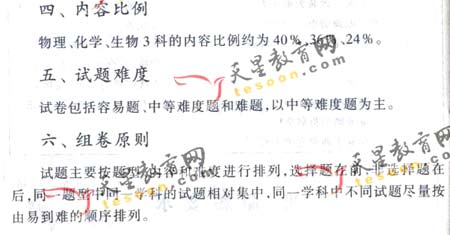 四、内容比例
物理、化学、生物3科的内容比例约为40%、36%、24%。
五、试题难度
天星教育网
tesoon.com
试卷包括容易题、中等难度题和难题,以中等难度题为主。
六、组卷原则
试题主要按题型、内容和难度进行排列,选择题在前,非选择题在
后,同一题型中同一学科的试题相对集中,同一学科中不同试题尽量按
由易到难的顺序排列。
天星教育网
tesoon.com
天星教育网
tesoon.com